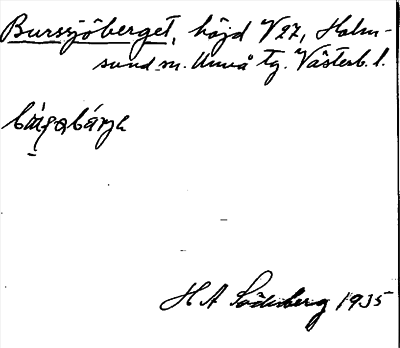 Bursjöberget, höjd V 27, Holm-
sund m. Umeå tg. Västerb. l.
H A Söderberg 1935